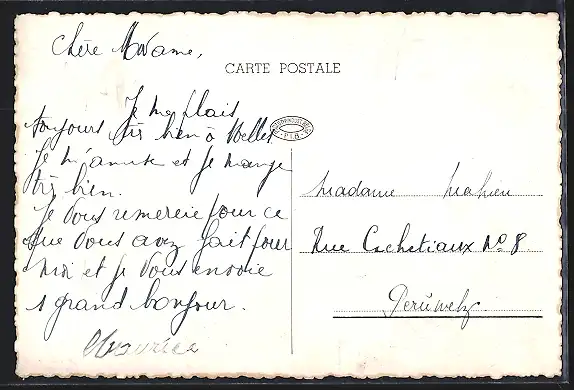 Chère Madame,
CARTE POSTALE
Je me plais
toujours très bien à
Je m'amuse et je mange
très bien.
Je vous remercie pour ce
que vous avez fait pour
moi et je vous envoie
1 grand bonjour.
Madame Mahieu
Rue Cachetiaux No 8
Péruwelz